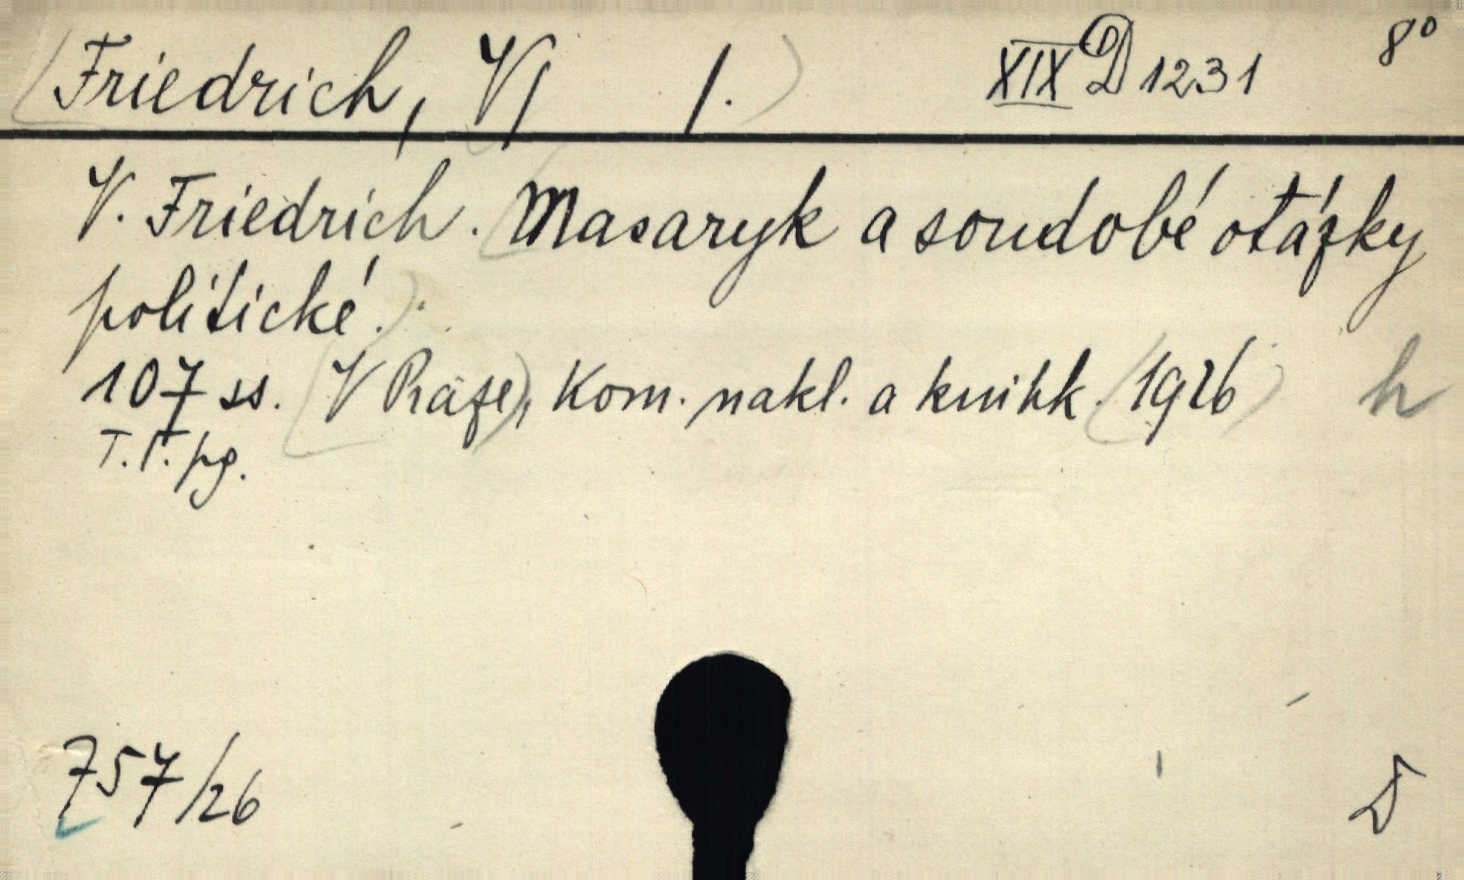 Friedrich, V| 1. XIX D 1231 8°
V. Friedrich. Masaryk a soudobé otázky
politické.
107 ss. V Praze, Kom. nakl. a knihk. 1926 h
T. T. pg.
757/26 D